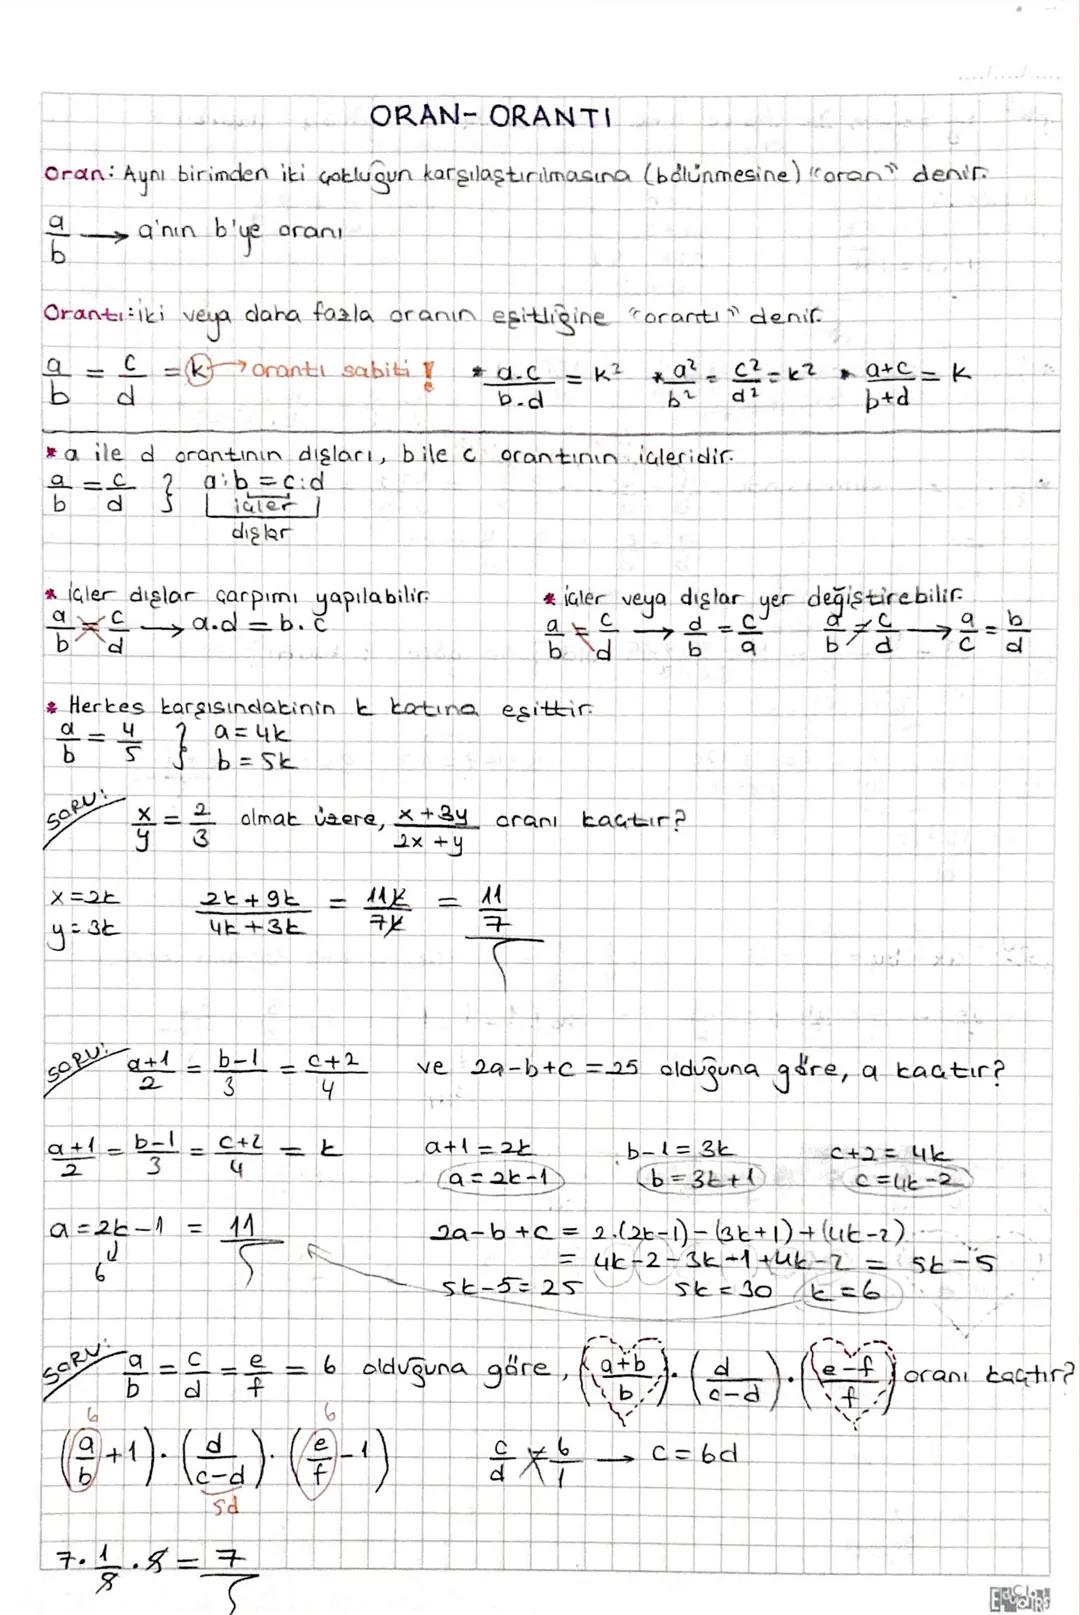 ORAN- ORANTI
Oran: Aynı birimden iki çokluğun karşılaştırılmasına (bölünmesine) "oran" denir.
a/b → a'nın b'ye oranı
Orantı: iki veya daha fazla oranın eşitliğine "orantı" denir.
a/b = c/d = k → orantı sabiti ! * a.c/b.d = k² * a²/b² = c²/d² = k² * a+c/b+d = k
* a ile d orantının dışları, b ile c orantının içleridir.
a/b = c/d } a:b = c:d
içler
dışlar
* içler dışlar çarpımı yapılabilir. * içler veya dışlar yer değiştirebilir.
a/b = c/d → a.d = b.c a/b = c/d → d/b = c/a a/b = c/d → a/c = b/d
* Herkes karşısındakinin k katına eşittir.
a/b = 4/5 } a = 4k
b = 5k
SORU: x/y = 2/3 olmak üzere, x+3y/2x+y oranı kaçtır?
x = 2k 2k+9k/4k+3k = 11k/7k = 11/7
y = 3k
SORU: a+1/2 = b-1/3 = c+2/4 ve 2a-b+c = 25 olduğuna göre, a kaçtır?
a+1/2 = b-1/3 = c+2/4 = k a+1 = 2k b-1 = 3k c+2 = 4k
a = 2k-1 b = 3k+1 c = 4k-2
a = 2k-1 = 11 2a-b+c = 2.(2k-1)-(3k+1)+(4k-2)
6 = 4k-2-3k-1+4k-2 = 5k-5
5k-5 = 25 5k = 30 k = 6
SORU: a/b = c/d = e/f = 6 olduğuna göre, (a+b/b).(d/c-d).(e-f/f) oranı kaçtır?
6 6
(a/b+1).(d/c-d).(e/f-1) c/d = 6/1 → c = 6d
5d
7.1/5.5 = 7